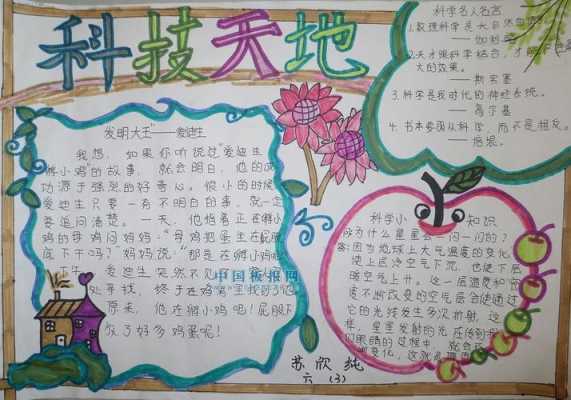 科技天地
发明大王"——爱迪生
我想，如果你听说过"爱迪生
孵小鸡"的故事，就会明白，他的成
功源于强烈的好奇心。很小的时候
爱迪生只要一有不明白的事，就一定
要追问清楚。一天，他指着正在孵小
鸡的母鸡问妈妈："母鸡把蛋坐在屁股
底下干吗？"妈妈说："那是在孵小鸡
爱迪生突然不见
处寻找，终于在鸡窝里找到了他
原来，他在孵小鸡呢！屁股下
放了好多鸡蛋呢！
中国板报网
科学名人名言
1.数理科学是大自
——伽利略
2.天才跟科学结合，才
大的效果。
——斯宾塞
3.科学是我时代的神经系统。
——高尔基
4.书本要跟从科学，而不是相反。
——培根。
科学小知识
问为什么星星会一闪一闪的？
答：因为地球上大气温度的变化
使上层冷空气下沉，也使下层
暖空气上升。这一层温度和密
度不断改变的空气层会使通过
它的光线发生多次折射，这
样，星星发射的光在传到
们眼睛的过程中，就会
变化，这就
苏欣纯
六（3）